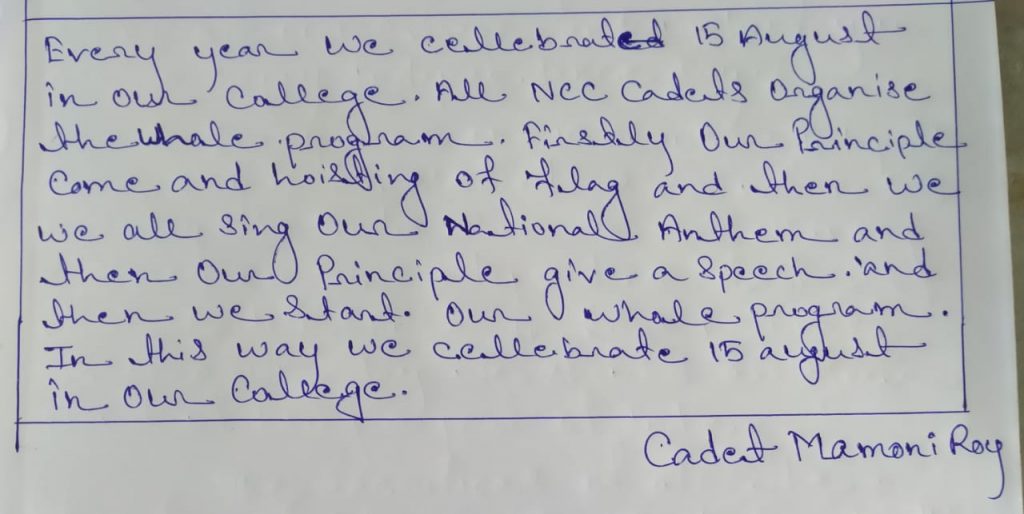 Every year we cellebrated 15 August
in our College. All NCC Cadets Organise
the whale program. Firstly Our Principle
Come and hoisting of flag and then we
we all sing Our National Anthem and
then Our Principle give a speech. and
then we start. Our whale program.
In this way we cellebrate 15 august
in Our College.
Cadet Mamoni Roy